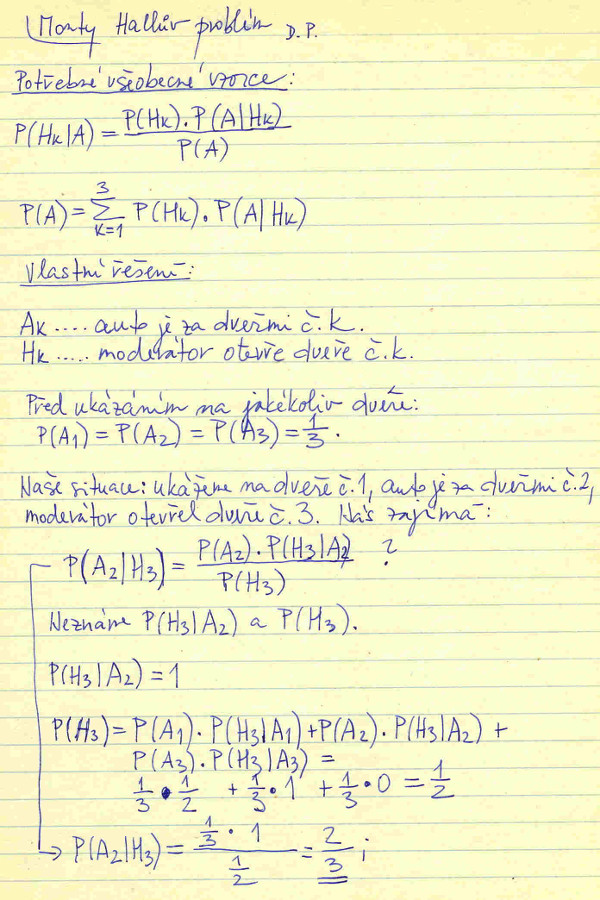 Monty Hallův problém D.P.
Potřebné všeobecné vzorce:
P(Hk|A) = P(Hk).P(A|Hk) / P(A)
P(A) = 3 Σ k=1 P(Hk).P(A|Hk)
Vlastní řešení:
Ak .... auto je za dveřmi č.k.
Hk ..... moderátor otevře dveře č.k.
Před ukázáním na jakékoliv dveře:
P(A1) = P(A2) = P(A3) = 1/3.
Naše situace: ukážeme na dveře č.1, auto je za dveřmi č.2,
moderátor otevřel dveře č.3. Nás zajímá:
P(A2|H3) = P(A2).P(H3|A2) / P(H3) ?
Neznáme P(H3|A2) a P(H3).
P(H3|A2) = 1
P(H3) = P(A1).P(H3|A1) + P(A2).P(H3|A2) +
P(A3).P(H3|A3) =
1/3 • 1/2 + 1/3 • 1 + 1/3 • 0 = 1/2
→ P(A2|H3) = 1/3 • 1 / 1/2 = 2/3 ;